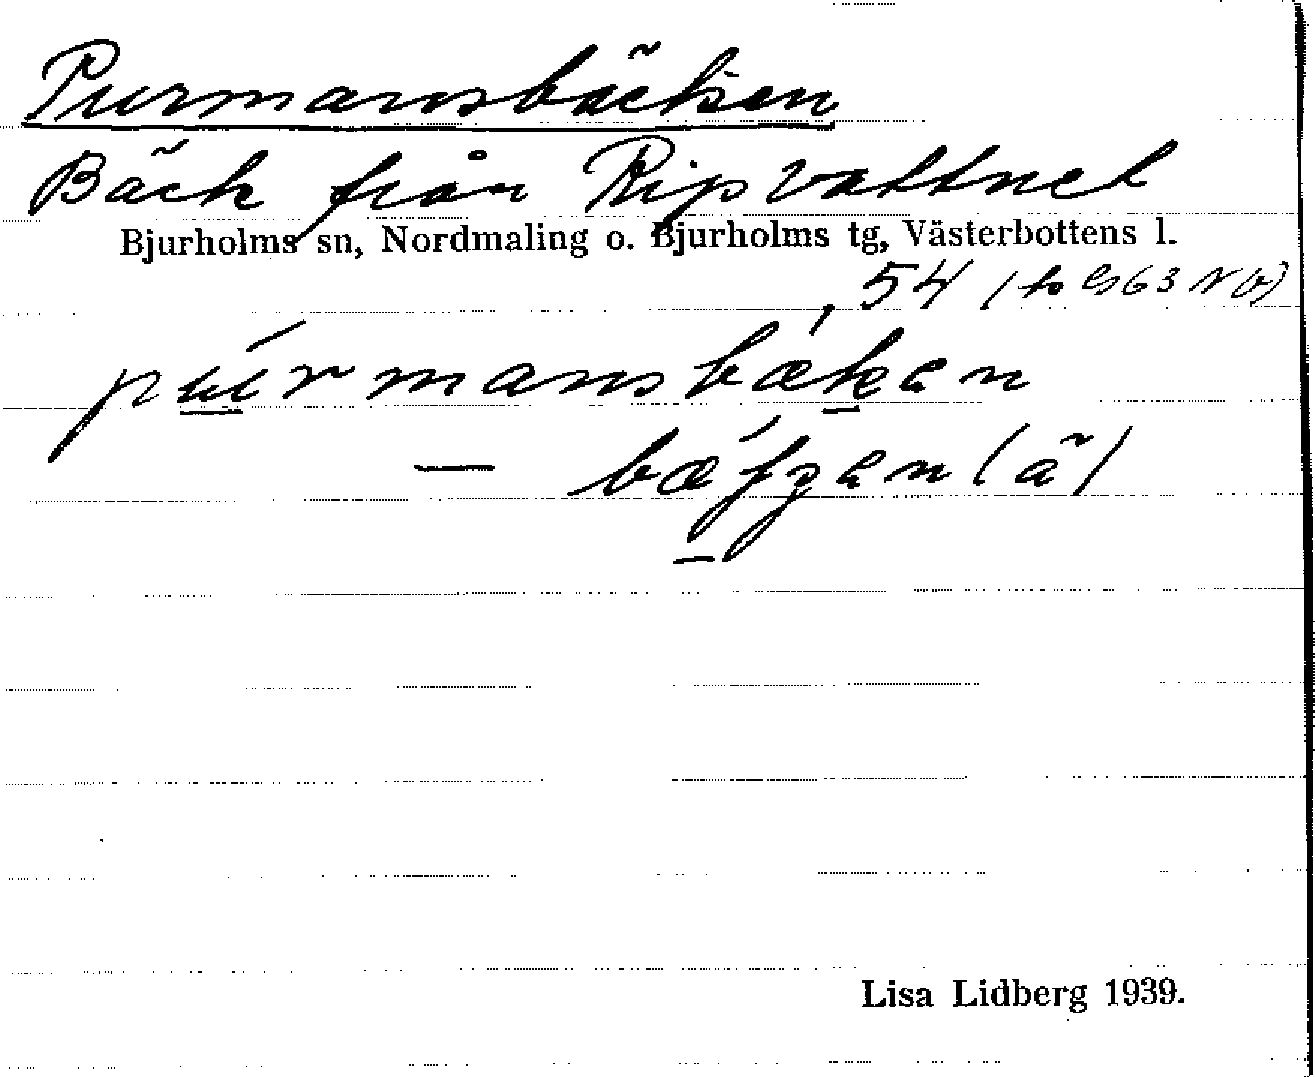 Purmansbäcken
Bäck från Ripvattnet
Bjurholms sn, Nordmaling o. Bjurholms tg, Västerbottens l.
54 (to 63 NV)
pu̲ú̲rmansbækan
— bǽfȝan (ä)
Lisa Lidberg 1939.